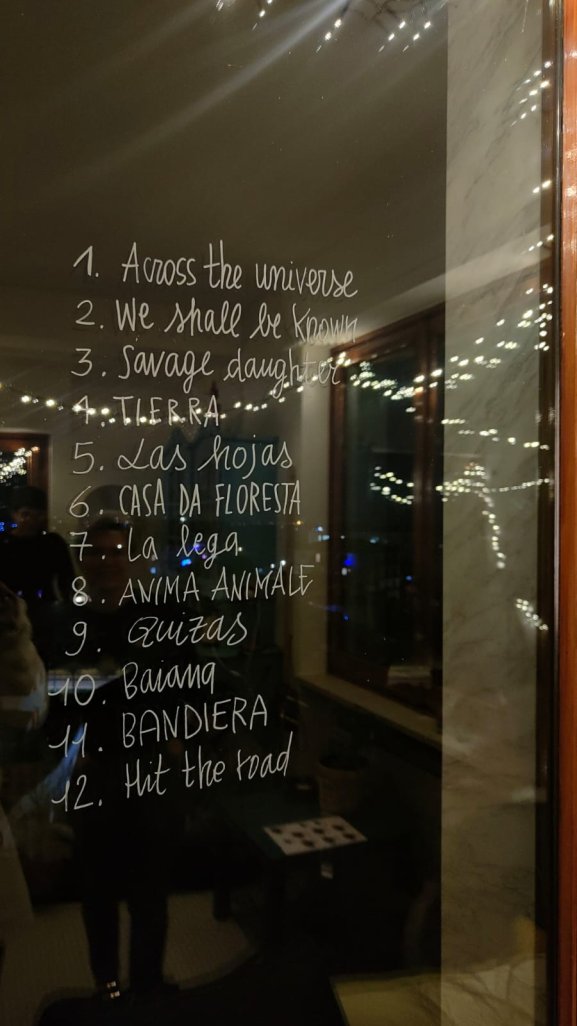 1. Across the universe
2. We shall be known
3. Savage daughter
4. TIERRA
5. Las hojas
6. CASA DA FLORESTA
7. La lega
8. ANIMA ANIMALE
9. Quizas
10. Baiana
11. BANDIERA
12. Hit the road